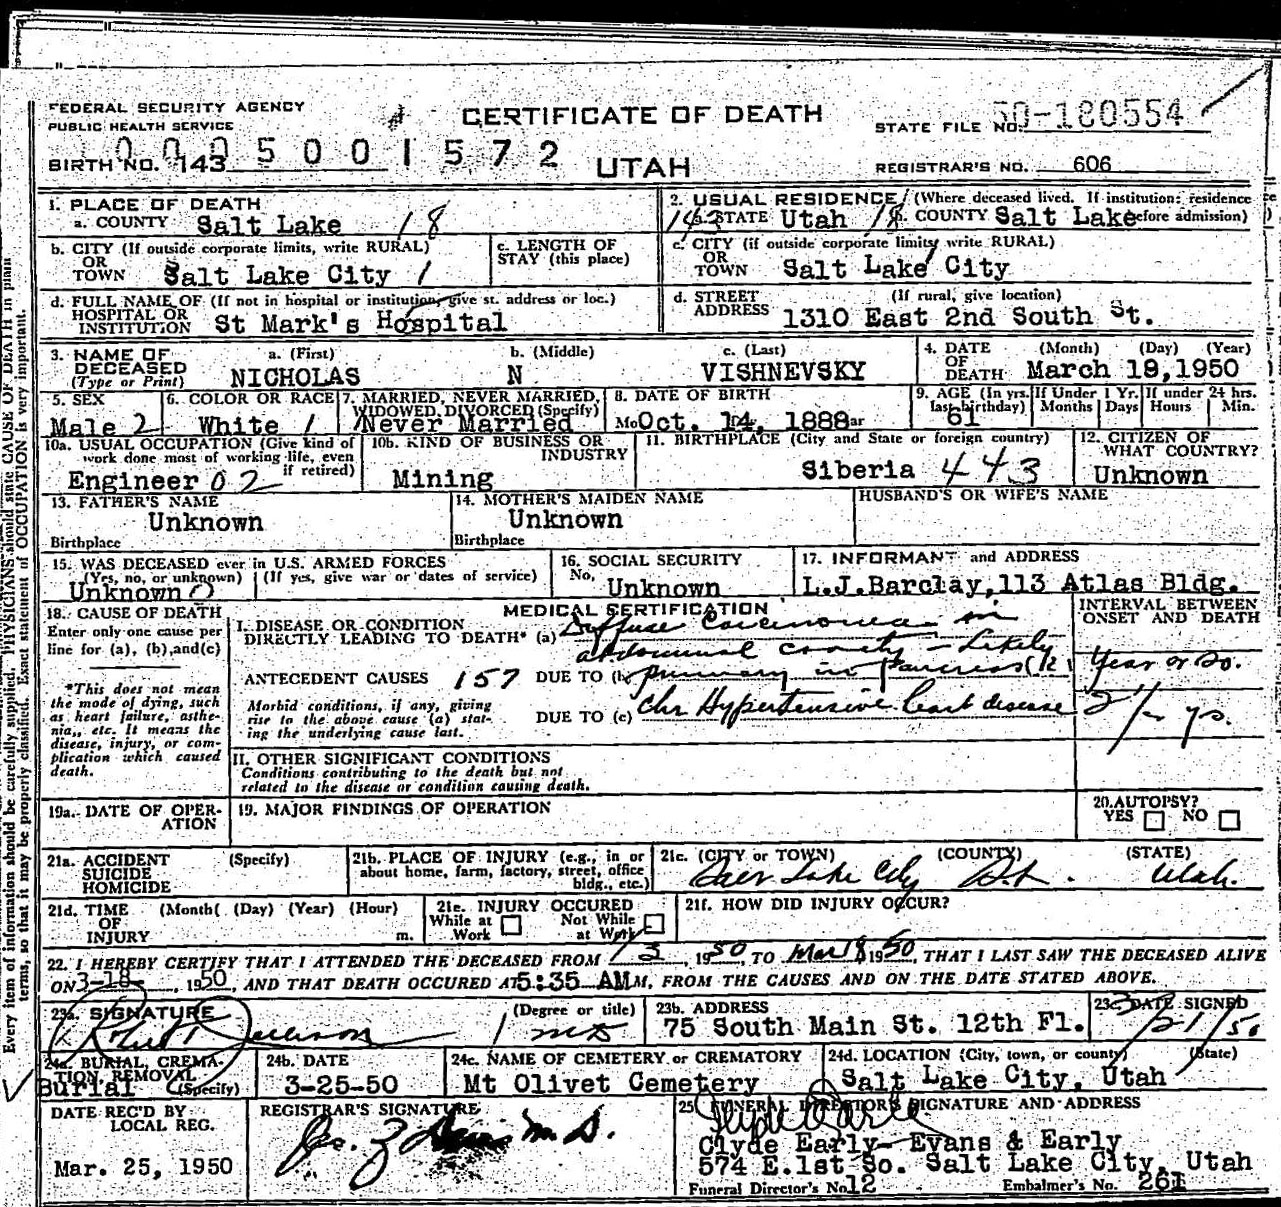 FEDERAL SECURITY AGENCY
PUBLIC HEALTH SERVICE
CERTIFICATE OF DEATH
STATE FILE NO. 50-180554
BIRTH NO. 143 5001572
UTAH
REGISTRAR'S NO. 606
1. PLACE OF DEATH
a. COUNTY Salt Lake 18
2. USUAL RESIDENCE (Where deceased lived. If institution: residence before admission)
143 STATE Utah 18 COUNTY Salt Lake
b. CITY (If outside corporate limits, write RURAL)
OR
TOWN Salt Lake City 1
c. LENGTH OF
STAY (this place)
c. CITY (if outside corporate limits write RURAL)
OR
TOWN Salt Lake City
d. FULL NAME OF (If not in hospital or institution, give st. address or loc.)
HOSPITAL OR
INSTITUTION St Mark's Hospital
d. STREET (If rural, give location)
ADDRESS 1310 East 2nd South St.
3. NAME OF DECEASED
(Type or Print)
a. (First) b. (Middle) c. (Last)
NICHOLAS N VISHNEVSKY
4. DATE OF DEATH (Month) (Day) (Year)
March 19,1950
5. SEX
Male 2
6. COLOR OR RACE
White 1
7. MARRIED, NEVER MARRIED,
WIDOWED, DIVORCED (Specify)
Never Married
8. DATE OF BIRTH
Oct. 14, 1888
9. AGE (In yrs. last birthday)
61
If Under 1 Yr.
Months Days
If under 24 hrs.
Hours Min.
10a. USUAL OCCUPATION (Give kind of
work done most of working life, even
if retired)
Engineer 02
10b. KIND OF BUSINESS OR
INDUSTRY
Mining
11. BIRTHPLACE (City and State or foreign country)
Siberia 443
12. CITIZEN OF
WHAT COUNTRY?
Unknown
13. FATHER'S NAME
Unknown
Birthplace
14. MOTHER'S MAIDEN NAME
Unknown
Birthplace
HUSBAND'S OR WIFE'S NAME
15. WAS DECEASED ever in U.S. ARMED FORCES
(Yes, no, or unknown) (If yes, give war or dates of service)
Unknown 0
16. SOCIAL SECURITY
No. Unknown
17. INFORMANT and ADDRESS
L.J.Barclay,113 Atlas Bldg.
18. CAUSE OF DEATH
Enter only one cause per
line for (a), (b), and (c)
*This does not mean
the mode of dying, such
as heart failure, asthe-
nia, etc. It means the
disease, injury, or com-
plication which caused
death.
MEDICAL CERTIFICATION
INTERVAL BETWEEN
ONSET AND DEATH
I. DISEASE OR CONDITION
DIRECTLY LEADING TO DEATH* (a) Diffuse carcinoma in
abdominal cavity - Likely
ANTECEDENT CAUSES 157 DUE TO (b) primary in pancreas
Year or so.
Morbid conditions, if any, giving
rise to the above cause (a) stat-
ing the underlying cause last.
DUE TO (c) chr Hypertensive heart disease
yrs.
II. OTHER SIGNIFICANT CONDITIONS
Conditions contributing to the death but not
related to the disease or condition causing death.
19a. DATE OF OPER-
ATION
19. MAJOR FINDINGS OF OPERATION
20. AUTOPSY?
YES NO
21a. ACCIDENT (Specify)
SUICIDE
HOMICIDE
21b. PLACE OF INJURY (e.g., in or
about home, farm, factory, street, office
bldg., etc.)
21c. (CITY or TOWN) (COUNTY) (STATE)
Salt Lake City S.L. Utah.
21d. TIME (Month) (Day) (Year) (Hour)
OF
INJURY m.
21e. INJURY OCCURED
While at Work Not While at Work
21f. HOW DID INJURY OCCUR?
22. I HEREBY CERTIFY THAT I ATTENDED THE DECEASED FROM 1/3 1950, TO Mar 18 1950, THAT I LAST SAW THE DECEASED ALIVE
ON 3-18, 1950, AND THAT DEATH OCCURED AT 5:35 AM M., FROM THE CAUSES AND ON THE DATE STATED ABOVE.
23a. SIGNATURE (Degree or title)
Robert 1 MD
23b. ADDRESS
75 South Main St. 12th Fl.
23c. DATE SIGNED
3/21/50
24a. BURIAL, CREMA-
TION, REMOVAL
Burial (Specify)
24b. DATE
3-25-50
24c. NAME OF CEMETERY or CREMATORY
Mt Olivet Cemetery
24d. LOCATION (City, town, or county) (State)
Salt Lake City, Utah
DATE REC'D BY
LOCAL REG.
Mar. 25, 1950
REGISTRAR'S SIGNATURE
M.D.
25 FUNERAL DIRECTOR'S SIGNATURE AND ADDRESS
Clyde Early
Clyde Early- Evans & Early
574 E.1st So. Salt Lake City, Utah
Funeral Director's No. 12 Embalmer's No. 261
Every item of information should be carefully supplied. PHYSICIANS should state CAUSE OF DEATH in plain
terms, so that it may be properly classified. Exact statement of OCCUPATION is very important.